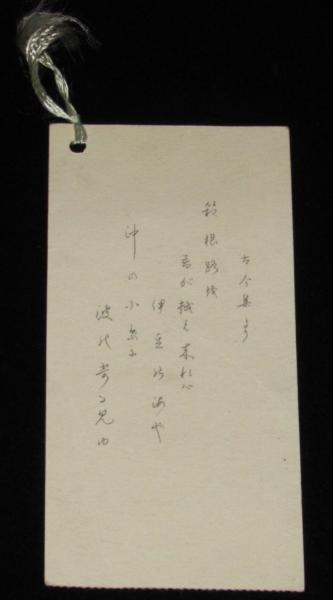 古今集より
箱根路を
吾が越え来れば
伊豆の海や
沖の小島に
波の寄る見ゆ